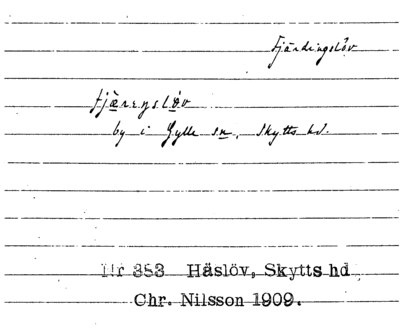 Fjärdingslöv
fjärrŋslöv
by i Gylle sn, Skytts hd.
Nr 353 Häslöv, Skytts hd
Chr. Nilsson 1909.